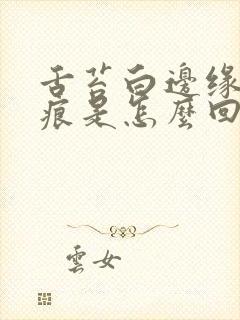 舌苔白邊緣
痕是怎麼回
雲女